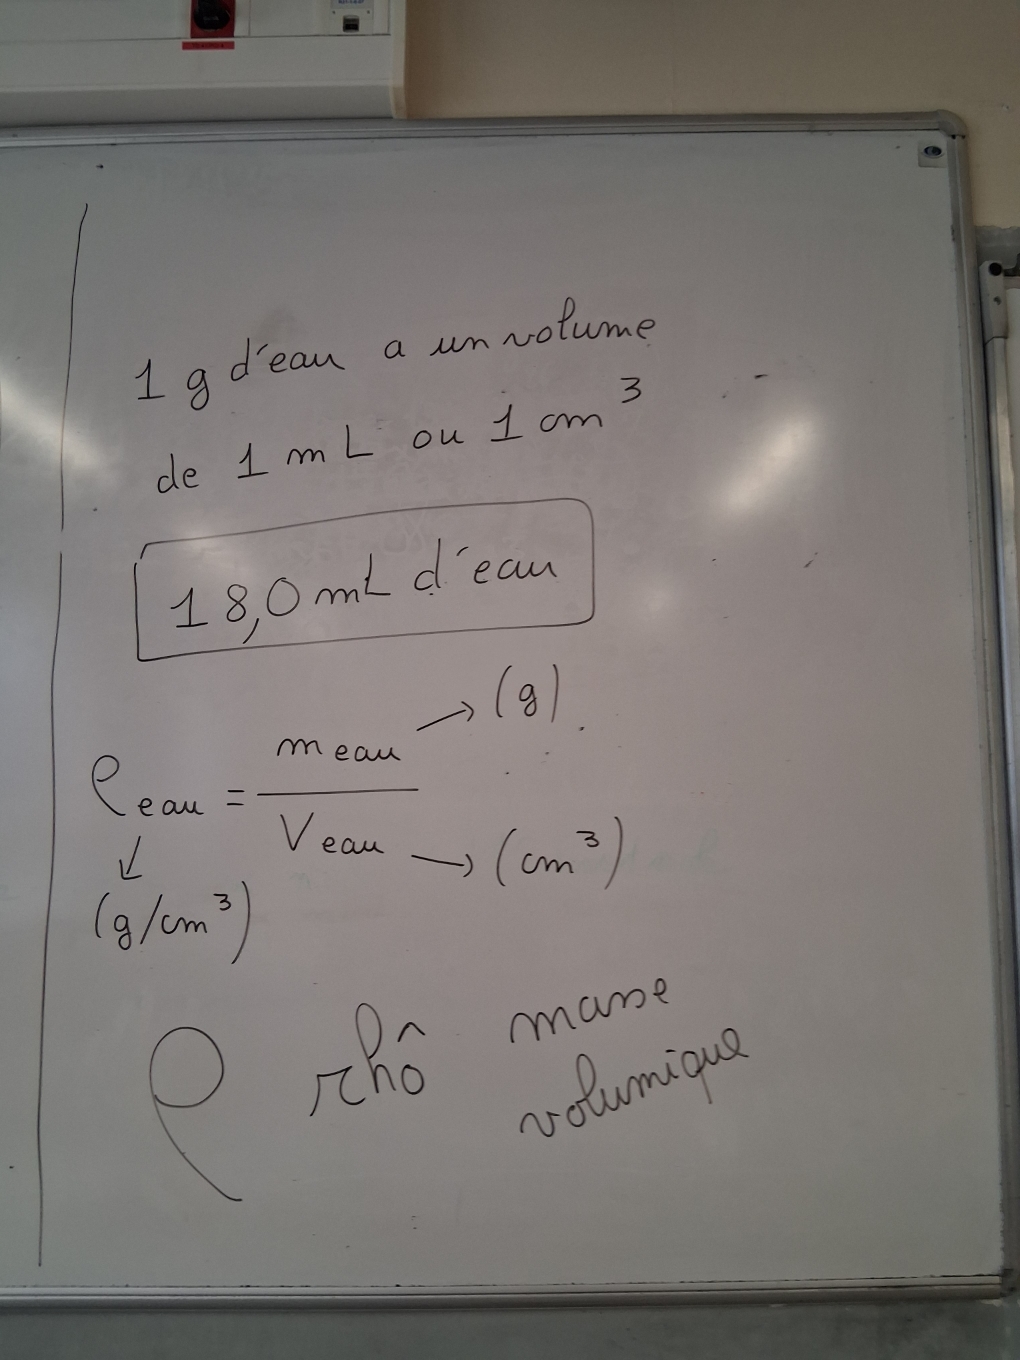 1 g d'eau a un volume
de 1 mL ou 1 cm³
18,0 mL d'eau
ρ eau = m eau / V eau
→ (g)
→ (cm³)
↓
(g/cm³)
ρ rhô masse
volumique